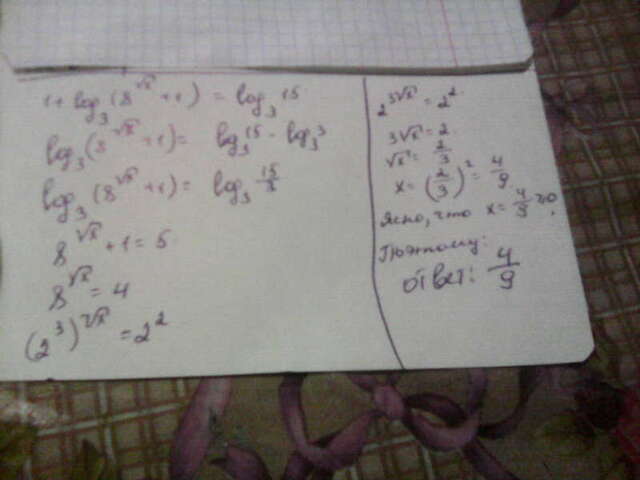 1 + log₃(8^√x + 1) = log₃ 15
log₃(8^√x + 1) = log₃ 15 - log₃ 3
log₃(8^√x + 1) = log₃ 15/3
8^√x + 1 = 5
8^√x = 4
(2³)^√x = 2²
2^3√x = 2²
3√x = 2
√x = 2/3
x = (2/3)² = 4/9
Ясно, что x = 4/9 > 0,
Поэтому:
ответ: 4/9